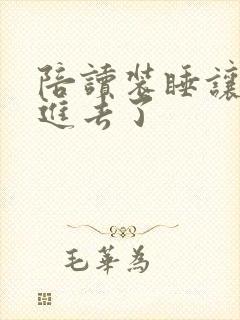 陪讀装睡讓
進去了
毛華為